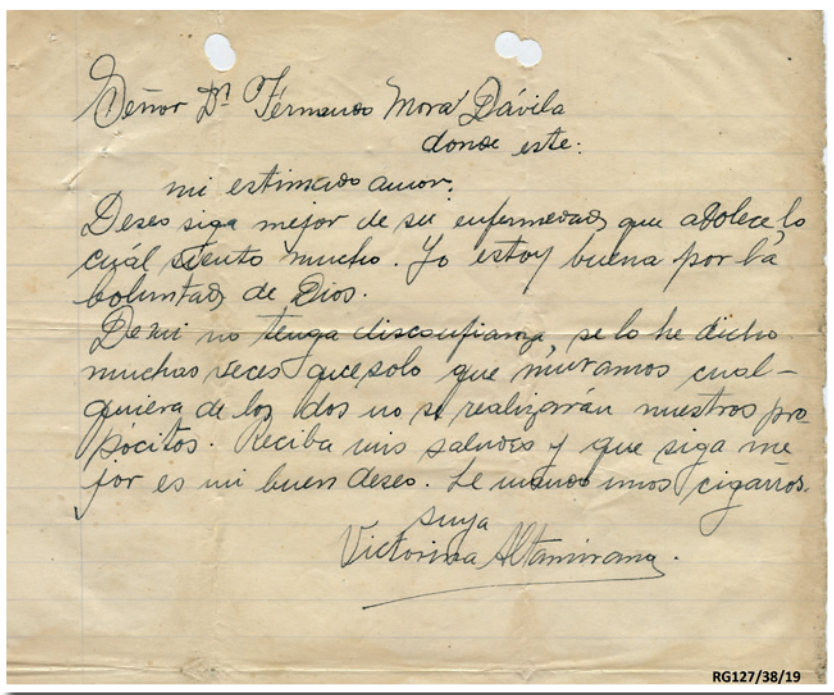 Señor Dn Fernando Mora Dávila
donde este:
mi estimado amor.
Deseo siga mejor de su enfermedad que adolece, lo
cuál siento mucho. Yo estoy buena por la
boluntad de Dios.
De mi no tenga disconfianza, se lo he dicho
muchas veces que solo que muramos cual-
quiera de los dos no se realizarán nuestros pro
pócitos. Reciba mis saludos y que siga me
jor es mi buen deseo. Le mando unos cigarros.
suya
Victorina Altamirano.
RG127/38/19